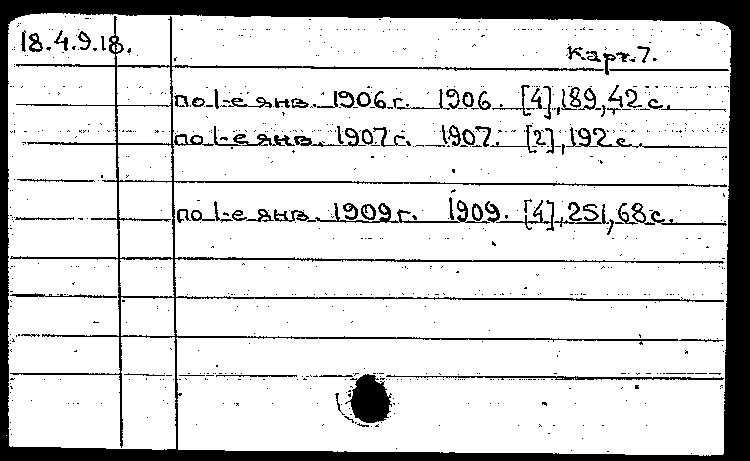 18.4.9.18.
Карт.7.
по 1-е янв. 1906 г. 1906. [4],189,42 с.
по 1-е янв. 1907 г. 1907. [2],192 с.
по 1-е янв. 1909 г. 1909. [4],251,68 с.